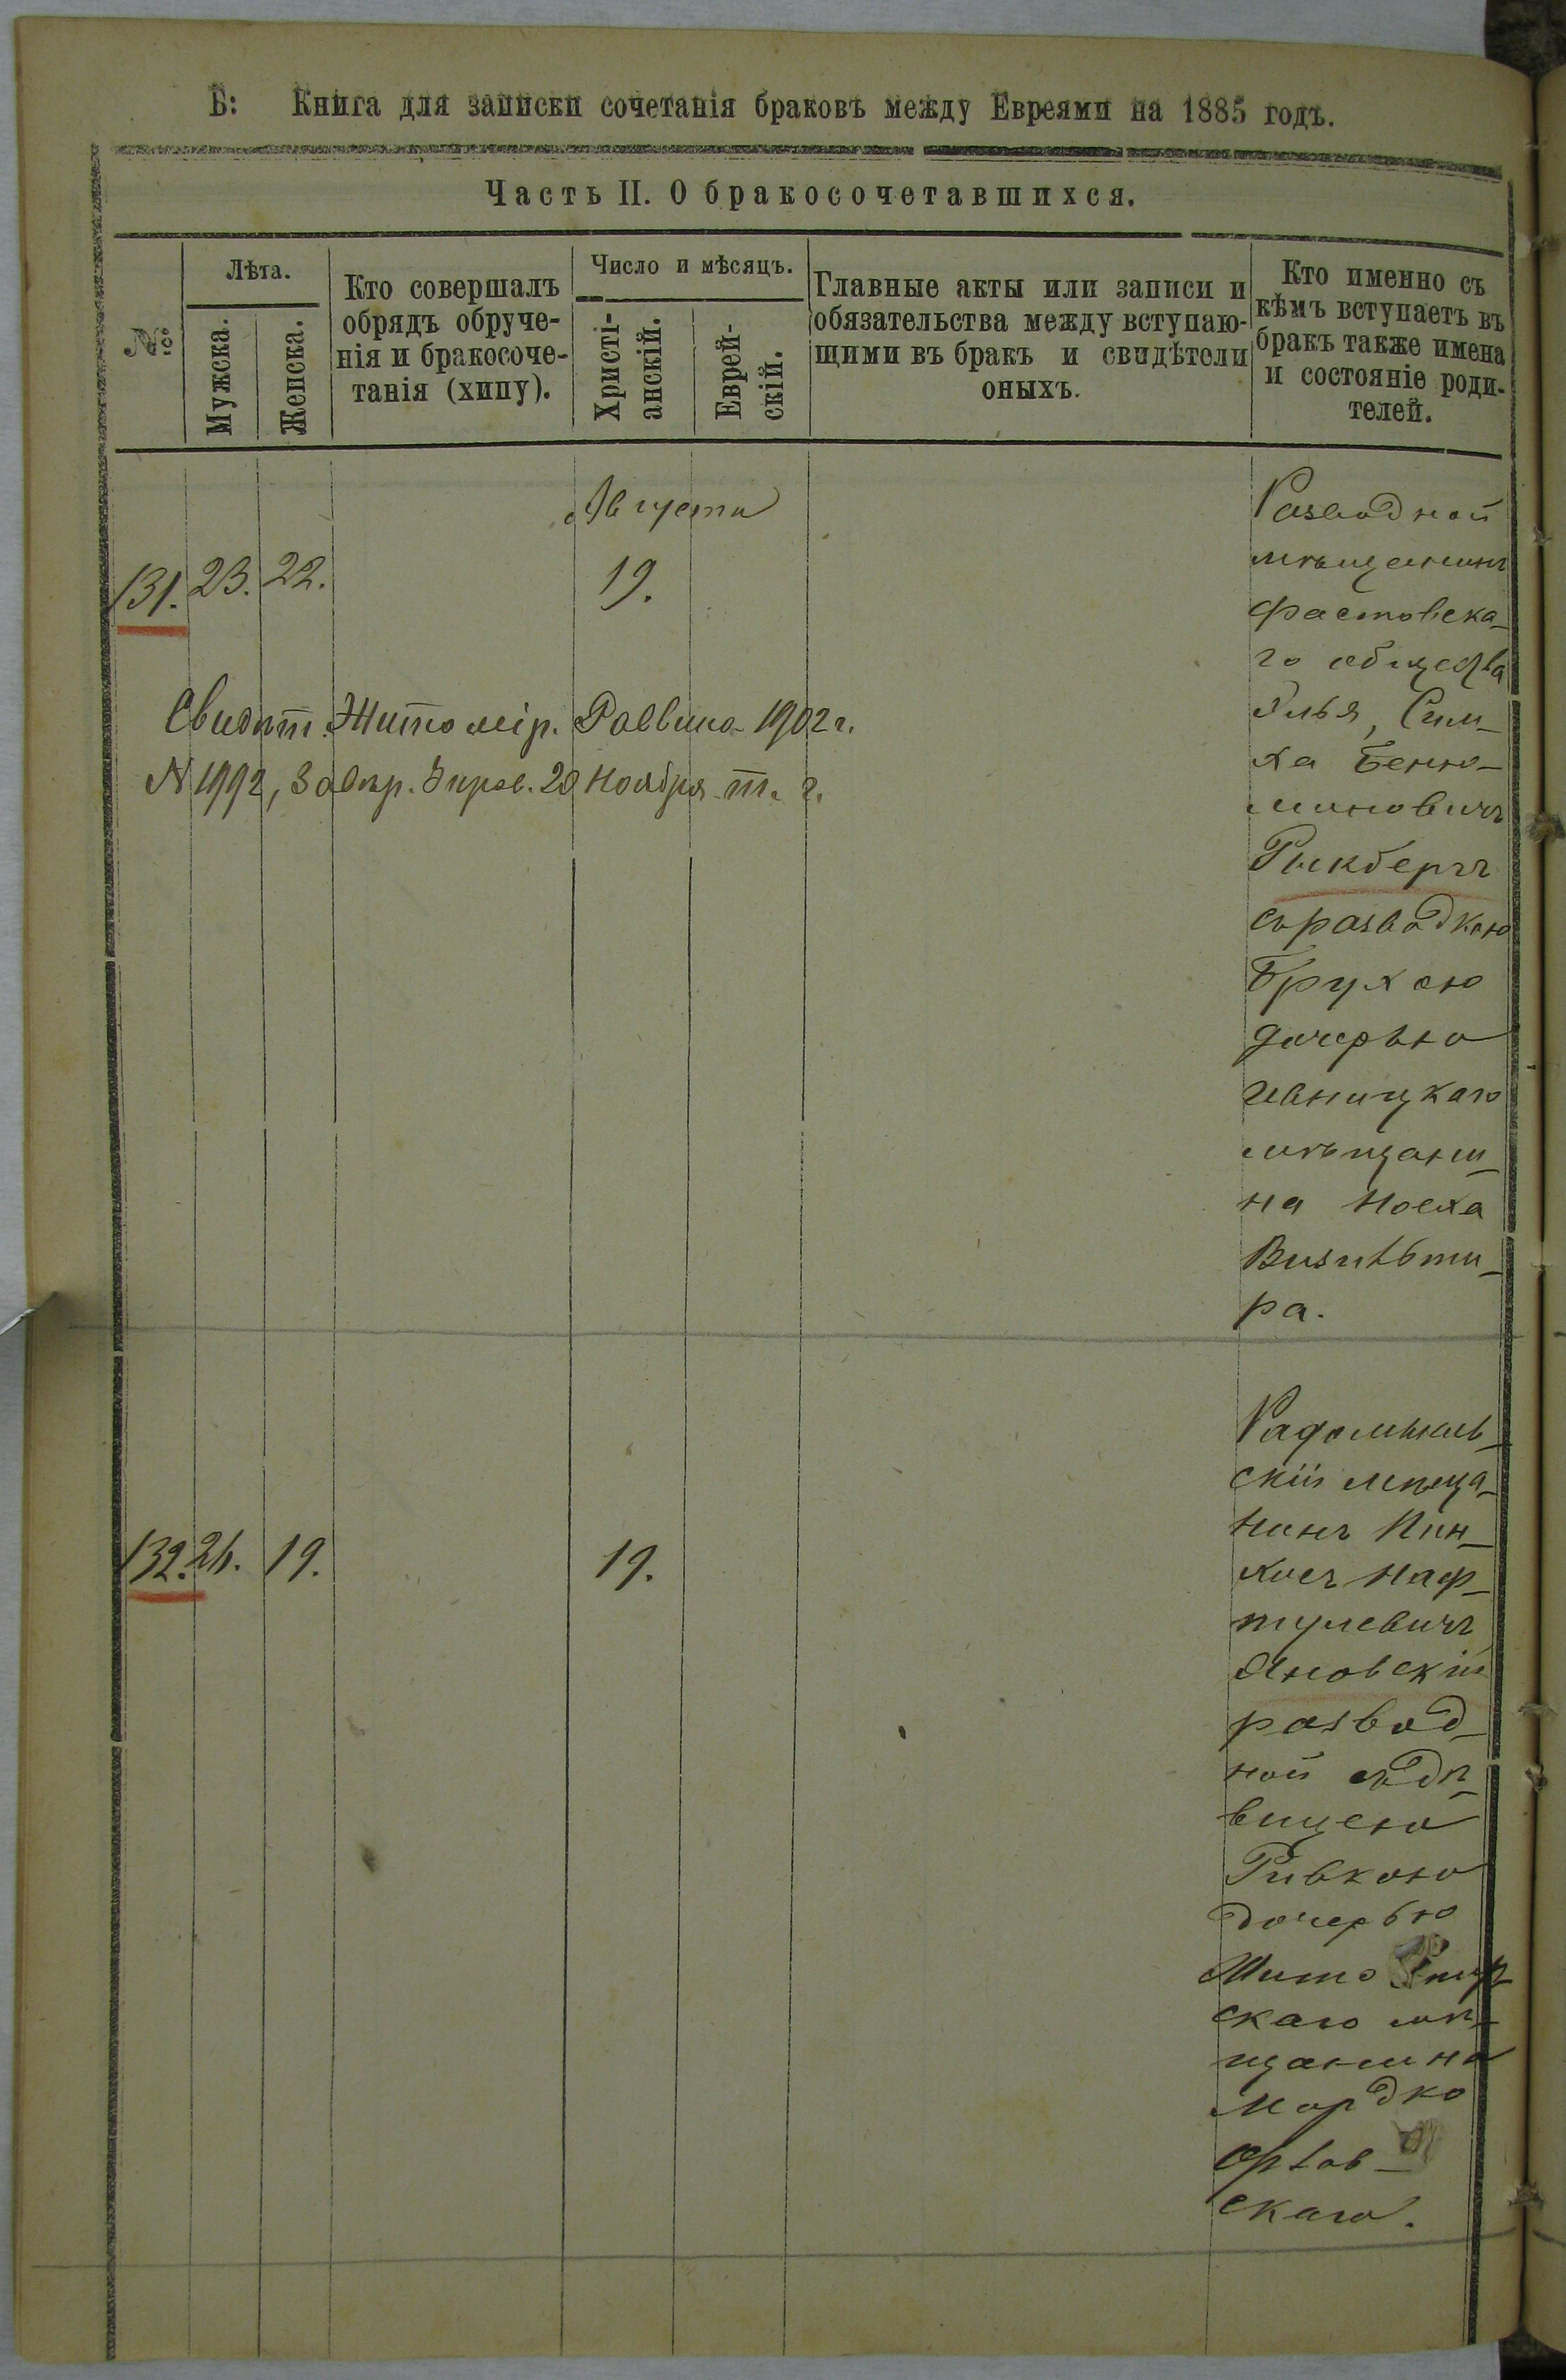 Б: Книга для записки сочетанія браковъ между Евреями на 1885 годъ.
Часть II. О бракосочетавшихся.
№
Лѣта.
Мужска.
Женска.
Кто совершалъ
обрядъ обруче-
нія и бракосоче-
танія (хипу).
Число и мѣсяцъ.
Христі-
анскій.
Еврей-
скій.
Главные акты или записи и
обязательства между вступаю-
щими въ бракъ и свидѣтели
оныхъ.
Кто именно съ
кѣмъ вступаетъ въ
бракъ также имена
и состояніе роди-
телей.
Августа
131. 23. 22. 19.
Разводной
мѣщанинъ
Фастовска-
го общества
Илья, Сим-
ха Беню-
миновичъ
Рыкбергъ
съ разводкою
Брухою
дочерью
Ивницкаго
мѣщани-
на Ноеха
ра.
Свидѣт. Житомір. Раввина 1902 г.
N 1992, Завѣр. Управ. 20 Ноября т. г.
132. 26. 19. 19.
Радомысль-
скій мѣща-
нинъ Пин-
хосъ Наф-
тулевичъ
Яновскій
развод-
ной съ дѣ-
вицею
Ривкою
дочерью
Житомир-
скаго мѣ-
щанина
Мордко
Орлов-
скаго.